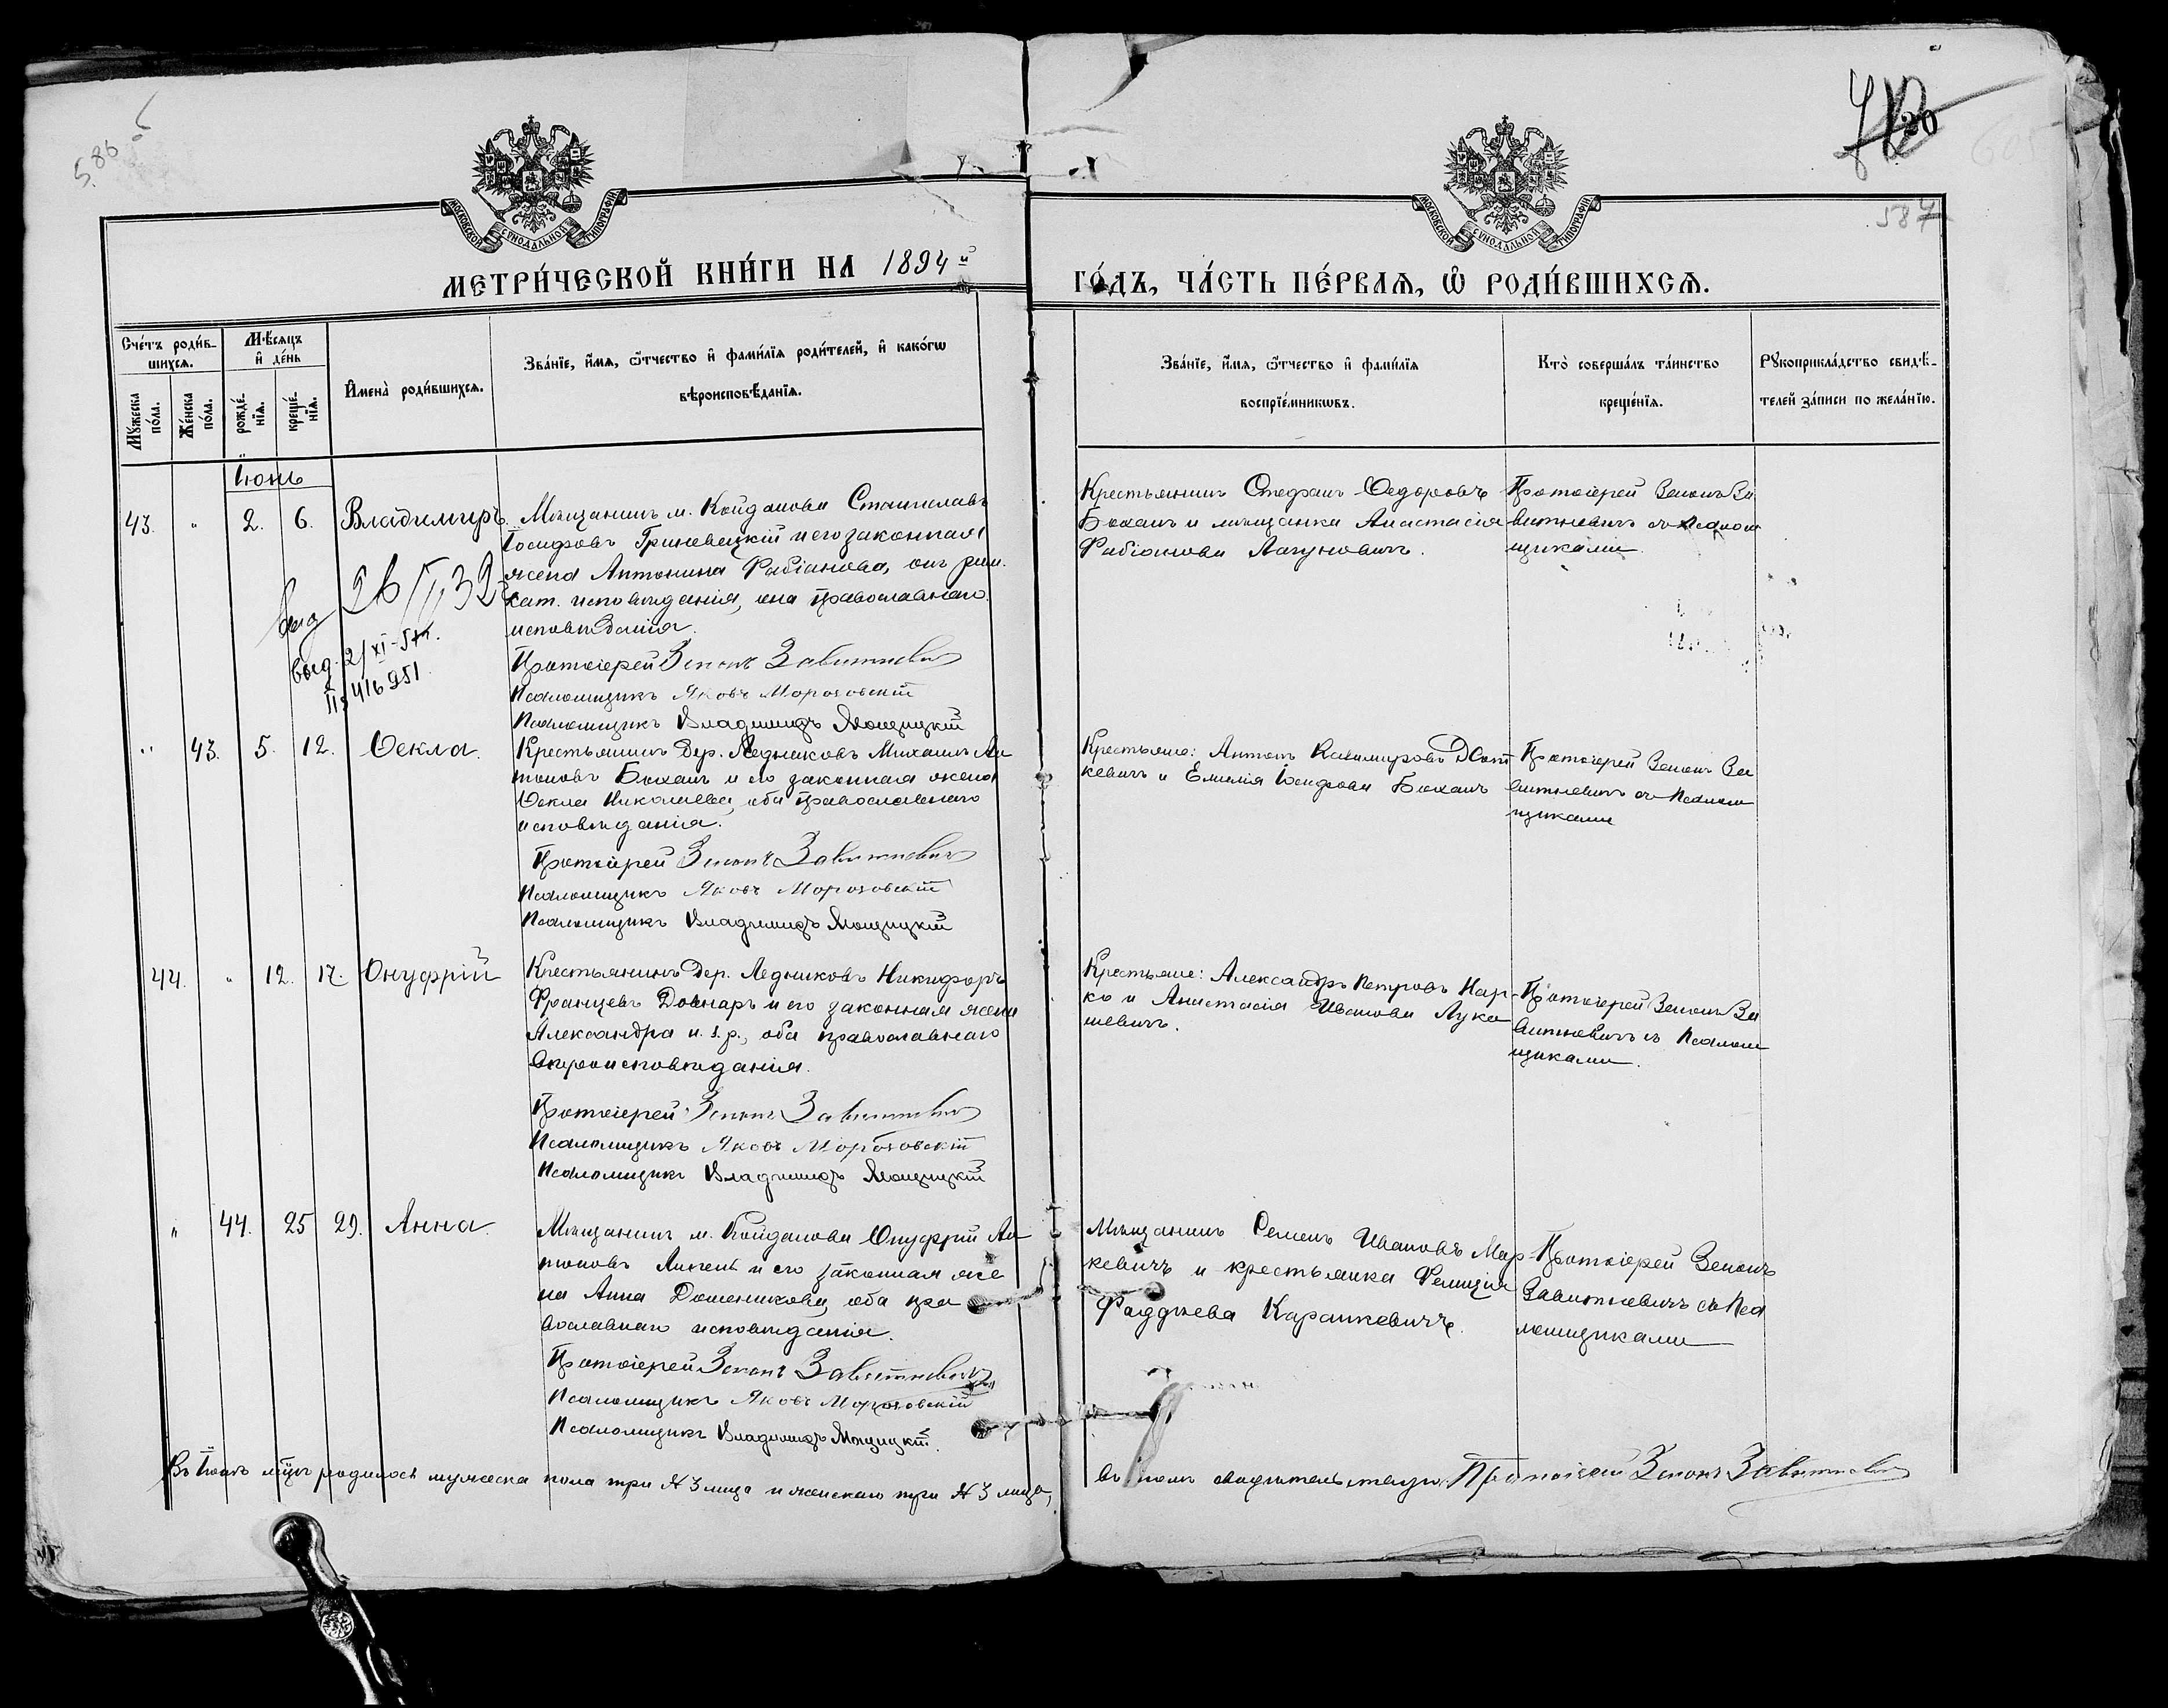 586
420
587
МОСКОВСКОЙ СУНОДАЛЬНОЙ ТИПОГРАФІИ
МОСКОВСКОЙ СУНОДАЛЬНОЙ ТИПОГРАФІИ
МЕТРИ́ЧЕСКОЙ КНИ́ГИ НА 1894й
ГО́ДЪ, ЧА́СТЬ ПЕ́РВАЯ, Ѡ҆ РОДИ́ВШИХСЯ.
Сче́тъ роди́в-
шихся.
Мꙋжеска по́ла.
Же́нска по́ла.
Мѣ́сяцъ
и҆ де́нь
рожде́-
нїя.
креще́-
нїя.
И҆мена̀ роди́вшихся.
Зва́нїе, и҆́мя, ѻ҆́тчество и҆ фамилїя роди́телей, и҆ како́гѡ
вѣроисповѣ́данїя.
Зва́нїе, и҆́мя, ѻ҆́тчество и҆ фамилїя
воспрїе́мникѡвъ.
Кто̀ соверша́лъ та́инство
креще́нїя.
Рꙋкоприкла́дство свидѣ́-
телей за́писи по жела́нїю.
Іюнь
43. " 2. 6. Владимиръ.
Мѣщанинъ м. Койданова Станиславъ
Іосифовъ Гриневецкій и его законная
жена Антонина Фабіанова, онъ рим.
кат. исповѣданія, она православнаго
исповѣданія.
Протоіерей Зенонъ Завитневичъ
Псаломщикъ Яковъ Морозовскій
Псаломщикъ Владимиръ Мощицкій
Крестьянинъ Стефанъ Федоровъ
Боханъ и мѣщанка Анастасія
Фабіанова Лагуновичъ.
Протоіерей Зенонъ За
витневичъ съ псалом
щиками.
выд
26/II 32
выд. 21/XI-51г.
416951
" 43. 5. 12. Ѳекла.
Крестьянинъ дер. Ледниковъ Михаилъ Ан
тоновъ Боханъ и его законная жена
Ѳекла Николаева, оба православнаго
исповѣданія.
Протоіерей Зенонъ Завитневичъ
Псаломщикъ Яковъ Морозовскій
Псаломщикъ Владимиръ Мощицкій
Крестьяне: Антонъ Казимировъ
кевичъ и Емилія Іосифова Боханъ
Протоіерей Зенонъ За
витневичъ съ псалом
щиками
44. " 12. 17. Онуфрій
Крестьянинъ дер. Ледниковъ Никифоръ
Францевъ Довнаръ и его законная жена
Александра и. з. р., оба православнаго
вѣроисповѣданія.
Протоіерей Зенонъ Завитневичъ
Псаломщикъ Яковъ Морозовскій
Псаломщикъ Владимиръ Мощицкій
Крестьяне: Александръ Петровъ Нар-
ко и Анастасія Иванова Лука
шевичъ.
Протоіерей Зенонъ За
витневичъ съ псалом
щиками.
" 44. 25 29. Анна.
Мѣщанинъ м. Койданова Онуфрій Ан
тоновъ и его законная же
на Анна Доменикова, оба пра
вославнаго исповѣданія.
Протоіерей Зенонъ Завитневичъ
Псаломщикъ Яковъ Морозовскій
Псаломщикъ Владимиръ Мощицкій.
Мѣщанинъ Семенъ Ивановъ Мар
кевичъ и крестьянка Фелиція
Фаддѣева Каранкевичъ.
Протоіерей Зенонъ
Завитневичъ съ пса
ломщиками
Въ Іюнѣ мѣсцѣ родилось мужеска пола три № 3 лица и женскаго три № 3 лица,
въ томъ свидѣтельствую. Протоіерей Зенонъ Завитневичъ